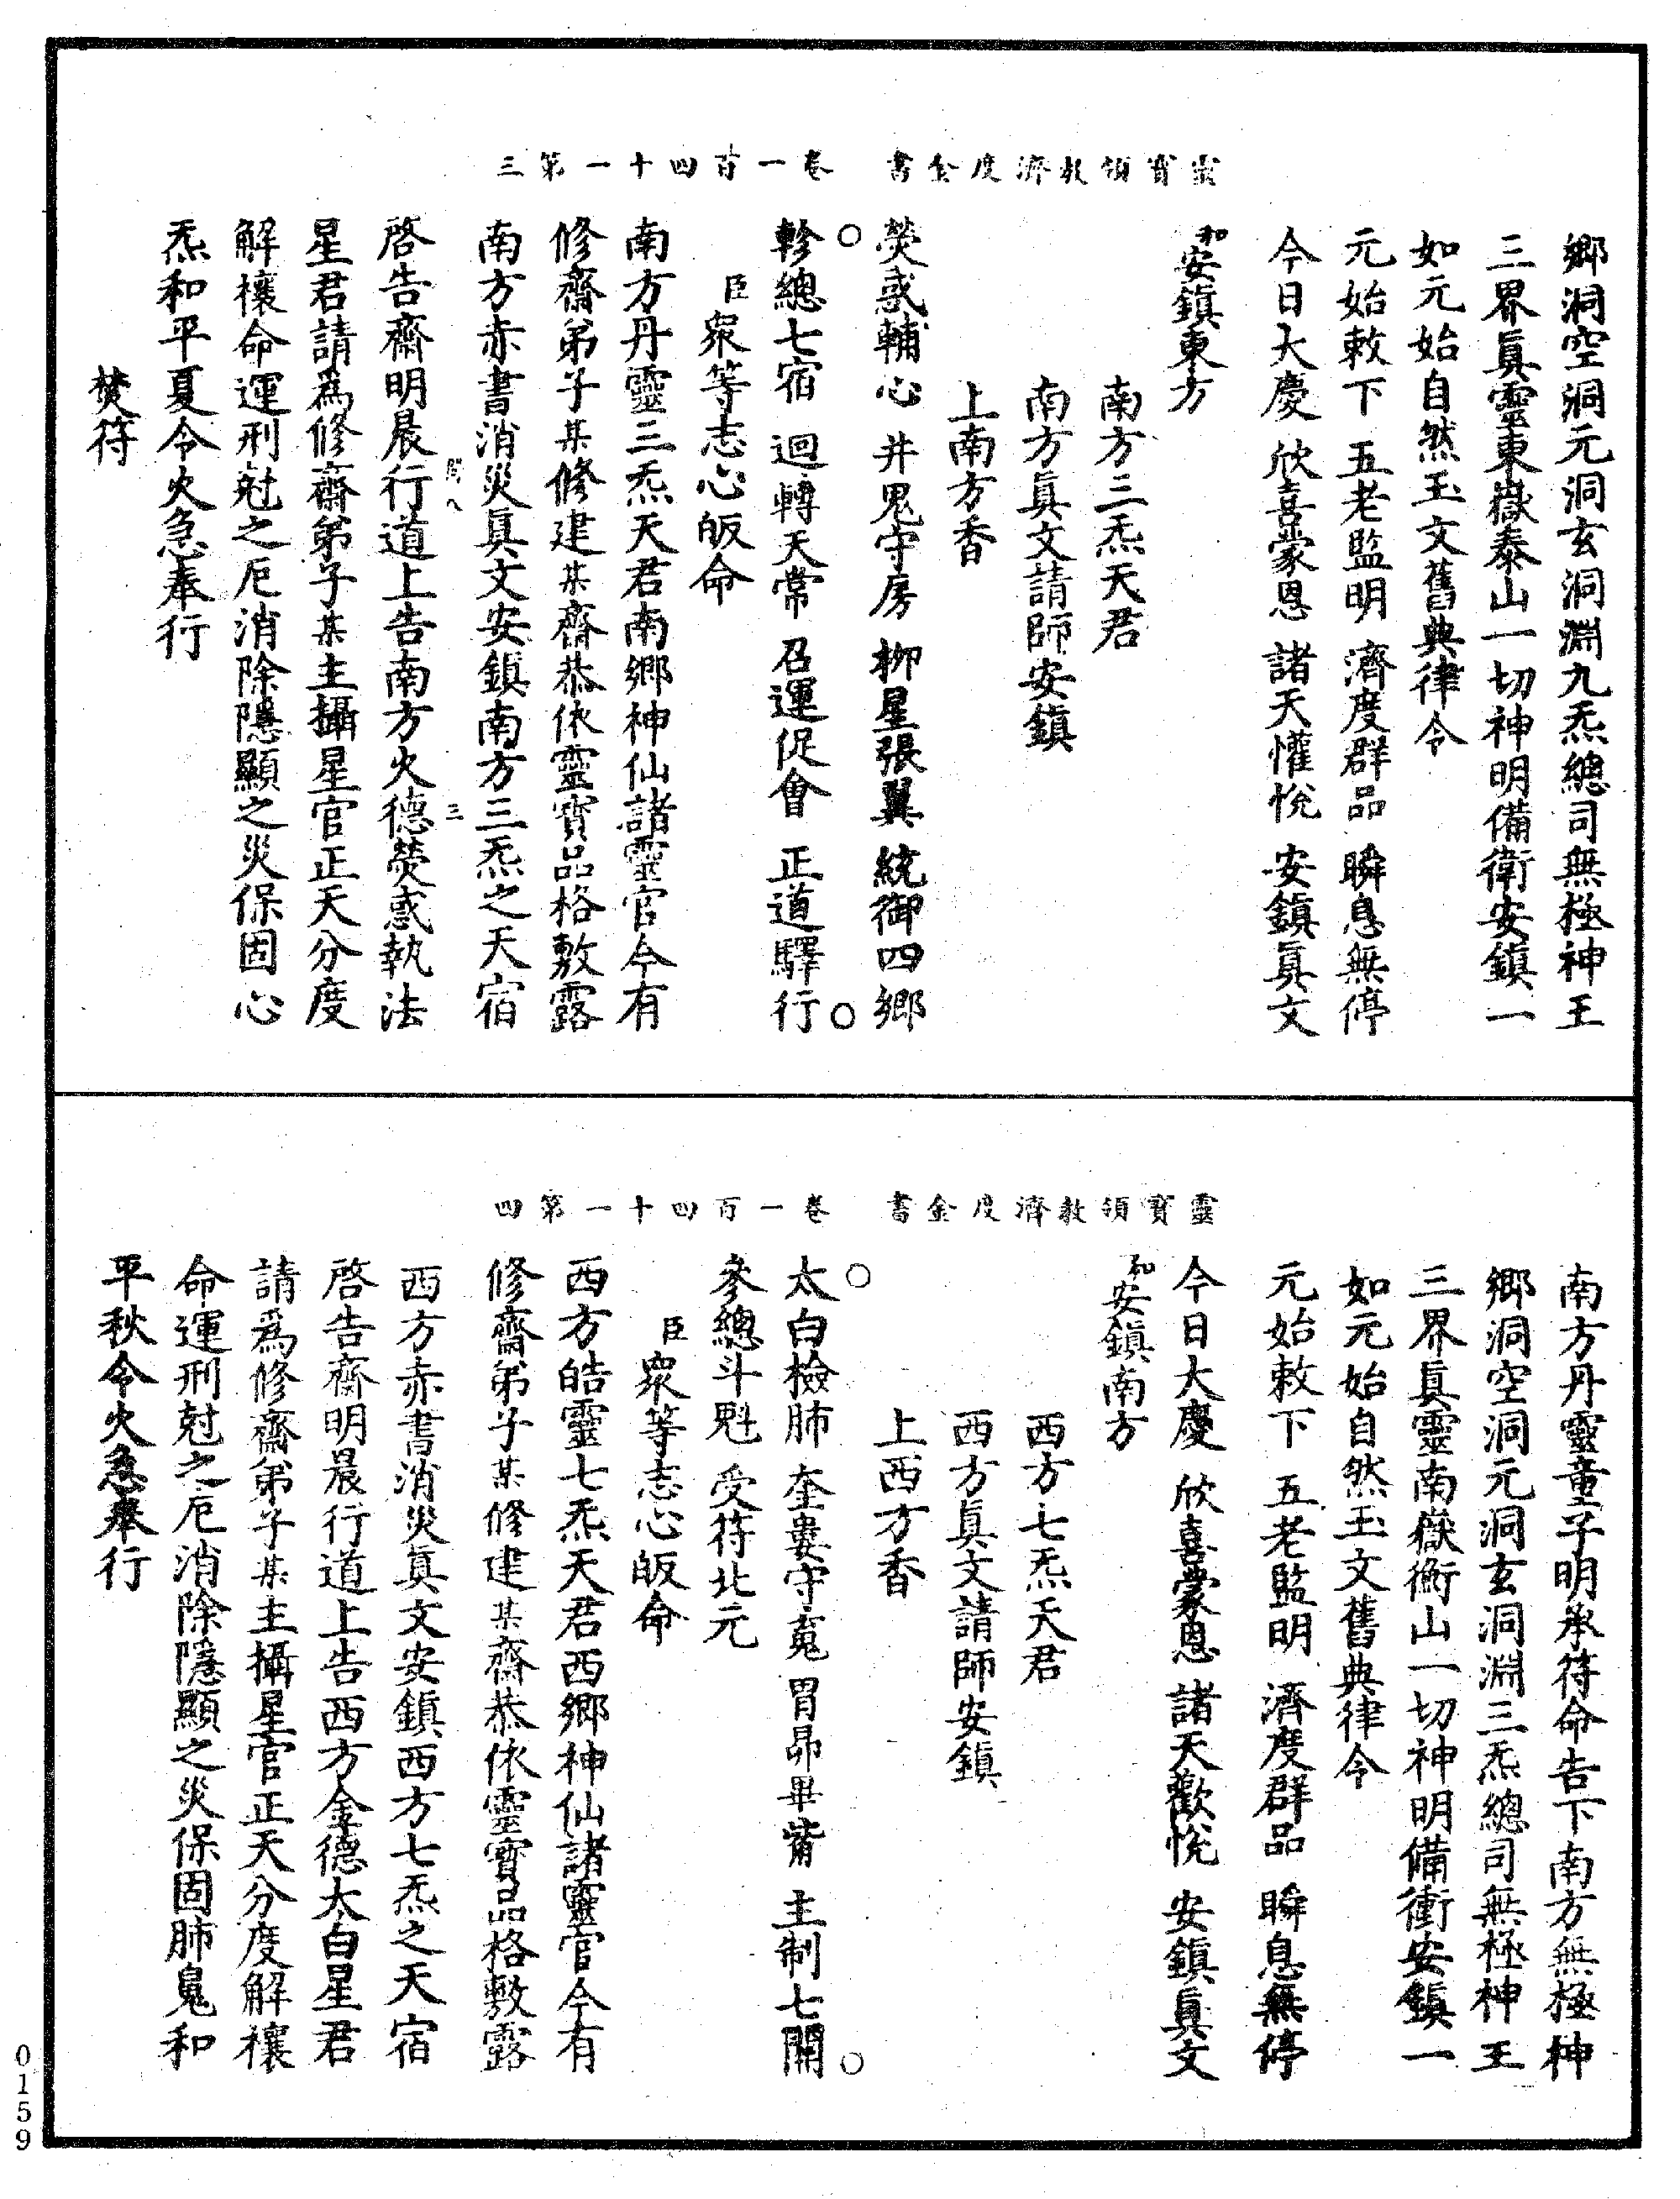 靈寶領教濟度金書　卷一百四十一第三
鄉洞空洞元洞玄洞淵九炁總司無極神王
三界眞靈東嶽泰山一切神明備衛安鎮一
如元始自然玉文舊典律令
元始敕下　五老監明　濟度群品　瞬息無停
今日大慶　欣喜蒙恩　諸天懽悅　安鎮眞文
和安鎮東方
南方三炁天君
南方眞文請師安鎮
上南方香
熒惑輔心　井鬼守房　柳星張翼　統御四鄉
軫總七宿　迴轉天常　召運促會　正道驛行
臣眾等志心皈命
南方丹靈三炁天君南鄉神仙諸靈官今有
修齋弟子某修建某齋恭依靈寶品格敷露
南方赤書消災眞文安鎮南方三炁之天宿
三
啓告齋明晨行道上告南方火德熒惑執法
星君請爲修齋弟子某主攝星官正天分度
解禳命運刑尅之厄消除隱顯之災保固心
炁和平夏令火急奉行
焚符
靈寶領教濟度金書　卷一百四十一第四
南方丹靈童子明承符命告下南方無極神
鄉洞空洞元洞玄洞淵三炁總司無極神王
三界眞靈南嶽衡山一切神明備衝安鎮一
如元始自然玉文舊典律令
元始敕下　五老監明　濟度群品　瞬息無停
今日大慶　欣喜蒙恩　諸天歡悅　安鎮眞文
和安鎮南方
西方七炁天君
西方眞文請師安鎮
上西方香
太白檢肺　奎婁守䰟　胃昴畢觜　主制七關
參總斗魁　受符北元
臣眾等志心皈命
西方皓靈七炁天君西鄉神仙諸靈官今有
修齋弟子某修建某齋恭依靈寶品格敷露
西方赤書消災眞文安鎮西方七炁之天宿
啓告齋明晨行道上告西方金德太白星君
請爲修齋弟子某主攝星官正天分度解禳
命運刑尅之厄消除隱顯之災保固肺䰟和
平秋令火急奉行
0159